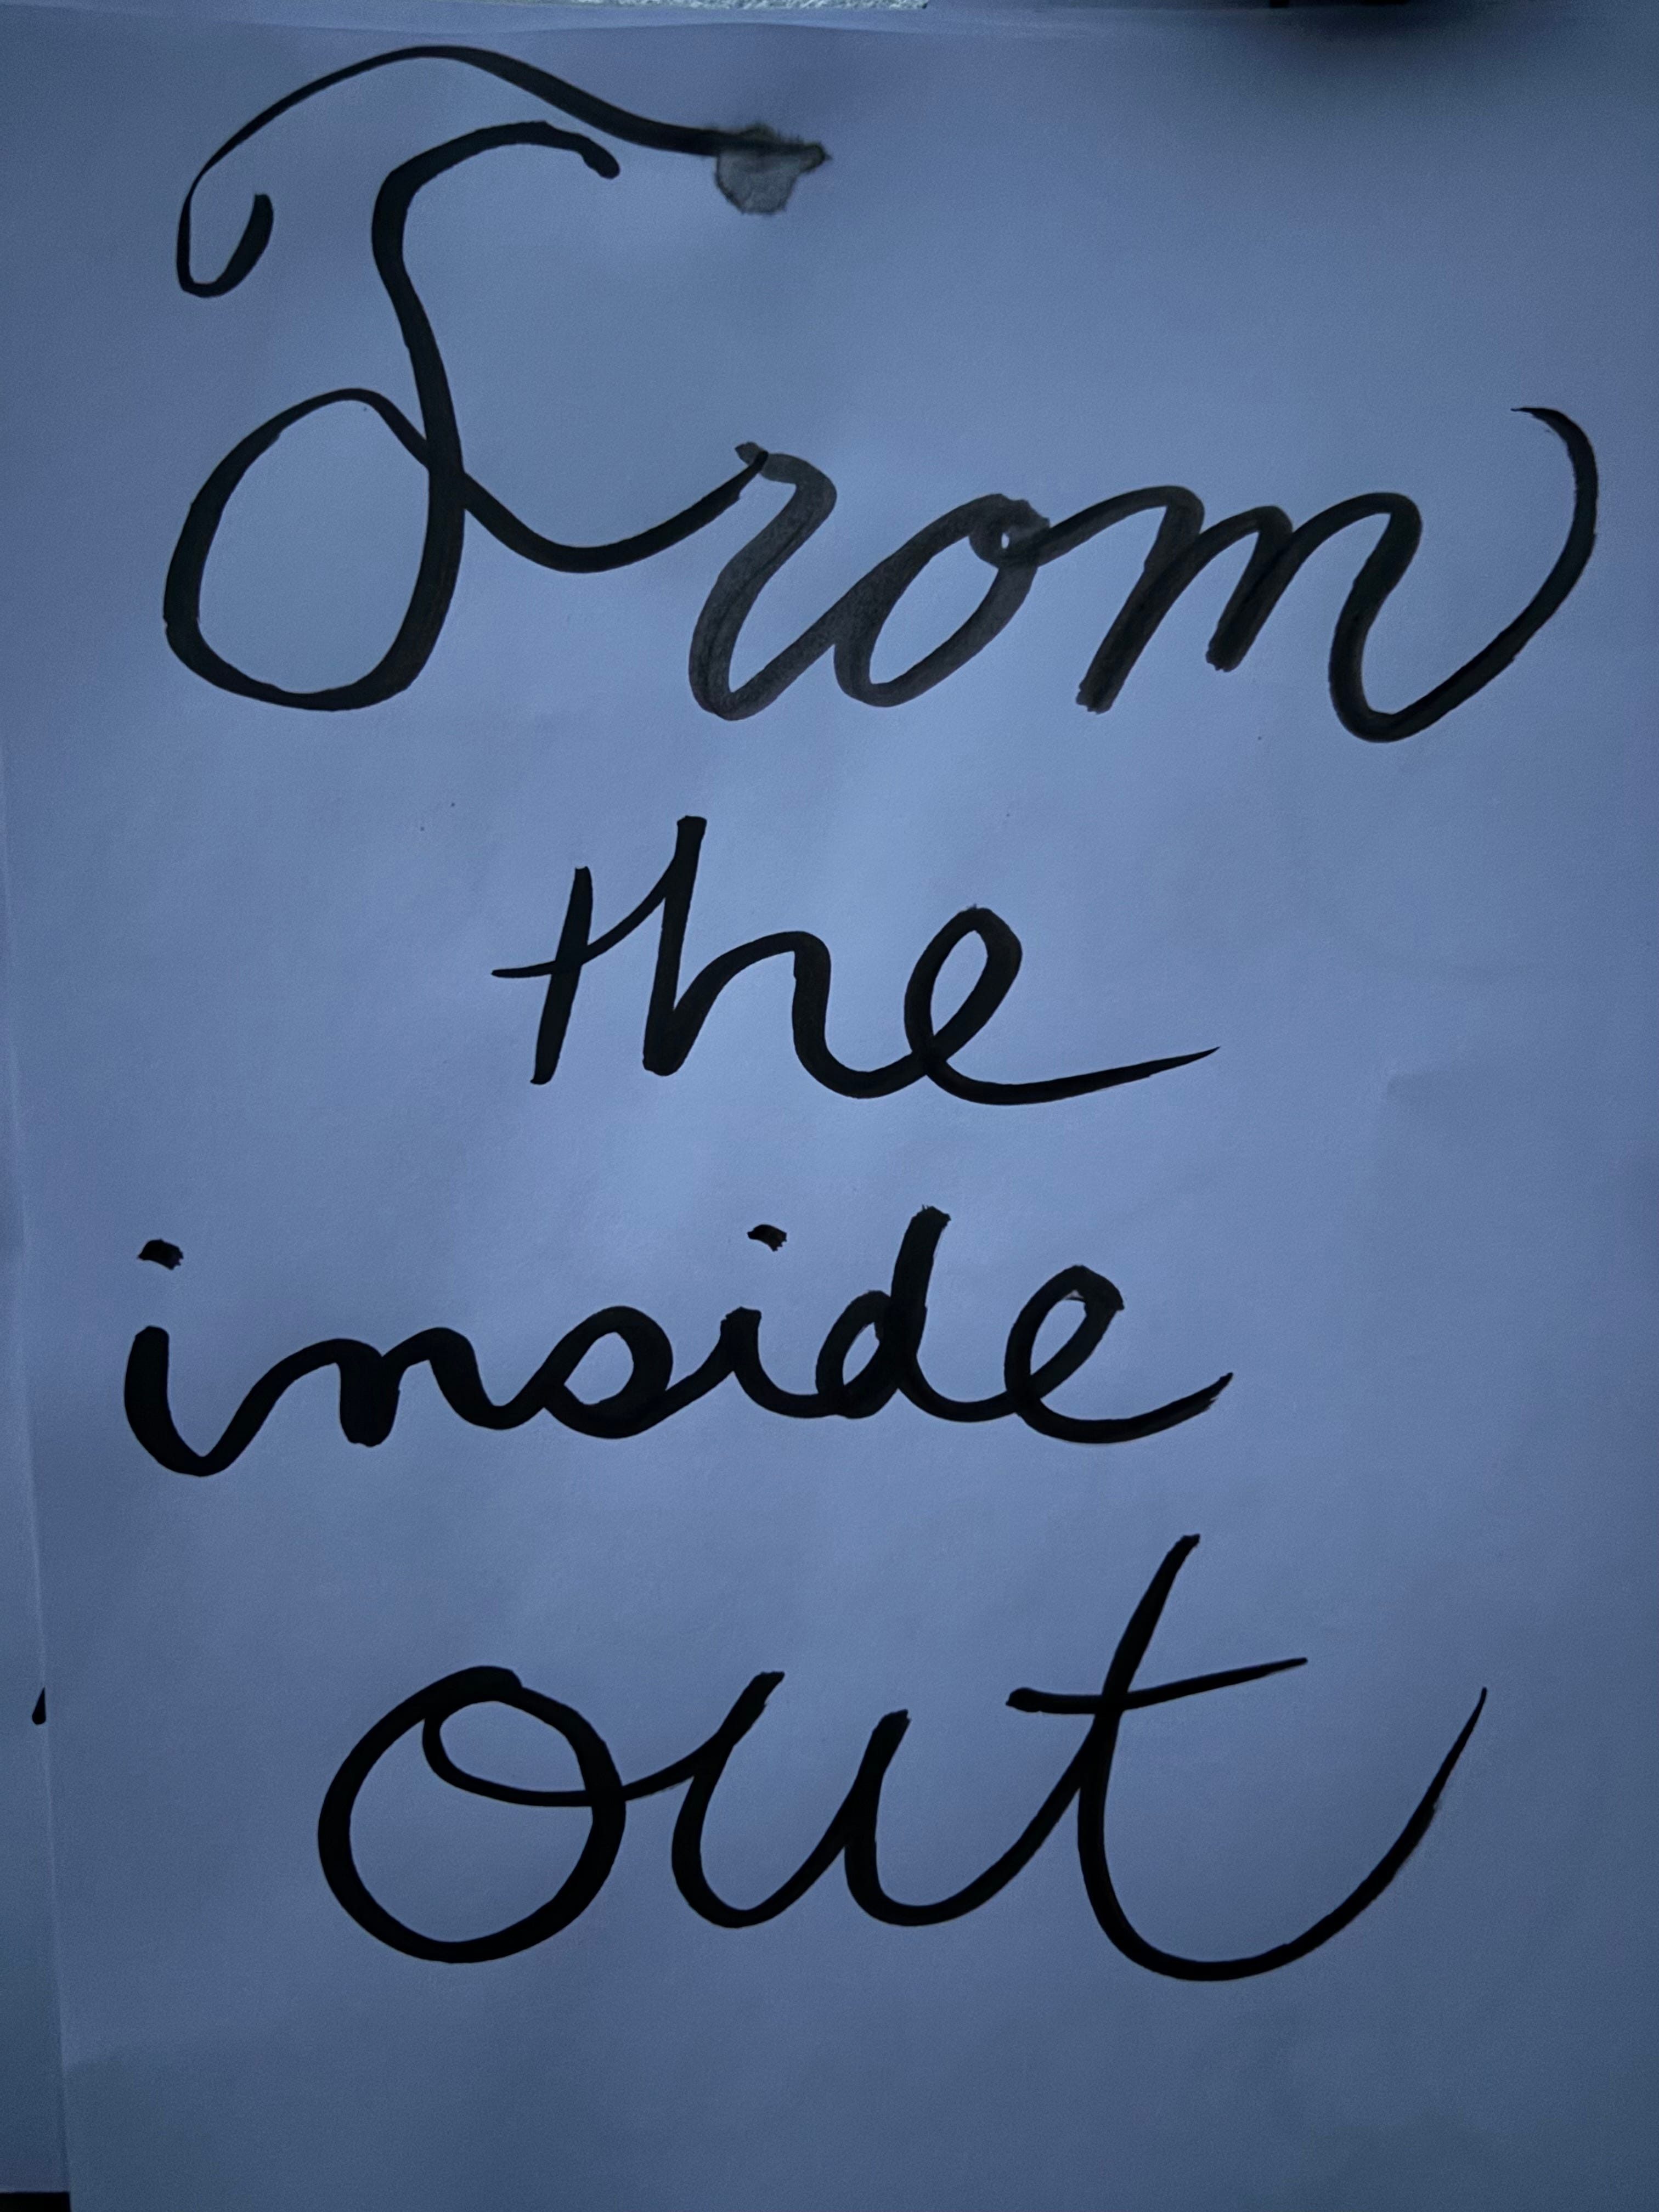 From
the
inside
out